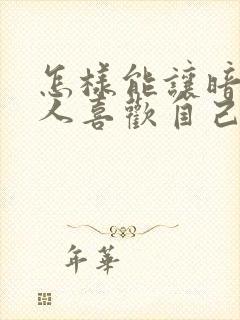 怎樣能讓暗
人喜歡自己
年華